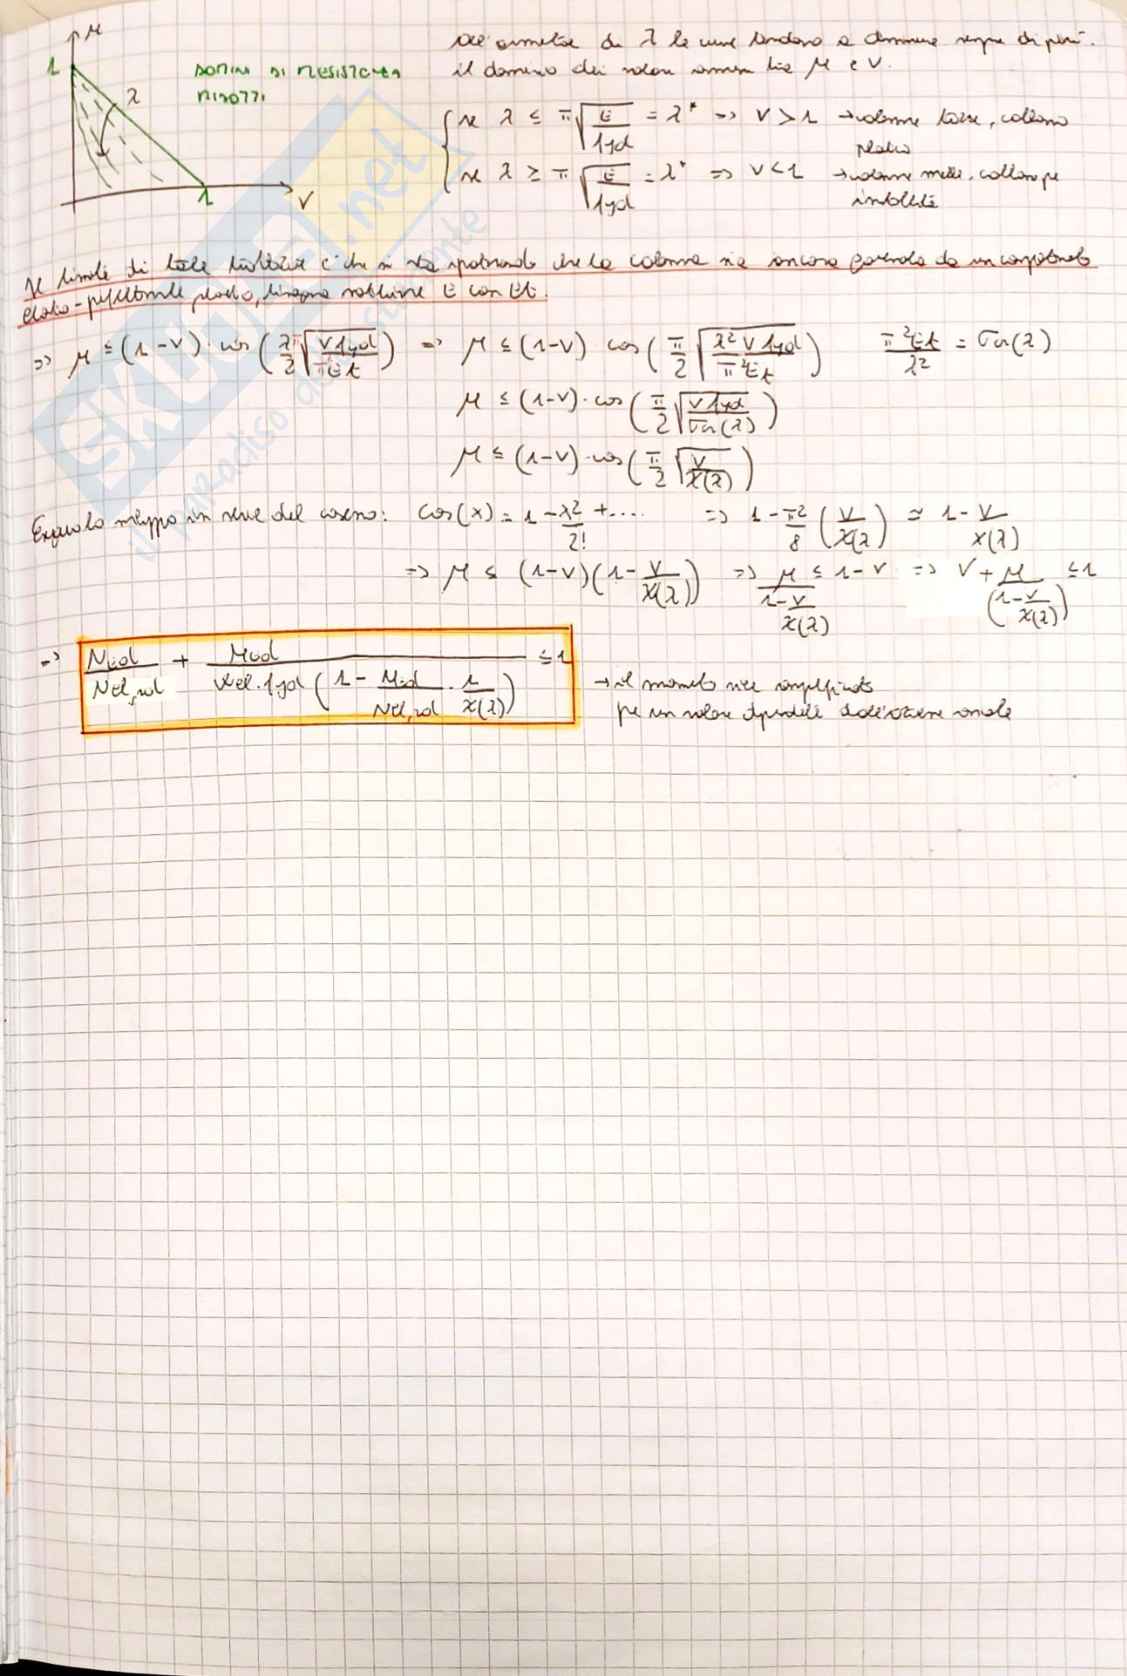 μ
1
λ
1
ν
DOMINI DI RESISTENZA
RIDOTTI
All'aumentare di λ le curve tendono a diminuire sempre di più
il dominio dei valori ammessi tra μ e ν.
se λ ≤ π√(E/fyd) = λ* => ν > 1 → colonne tozze, collasso
plastico
se λ ≥ π√(E/fyd) = λ* => ν < 1 → colonne snelle, collasso per
instabilità
Il limite di tale trattazione è che si sta ipotizzando che la colonna sia ancora governata da un comportamento
elasto-perfettamente plastico, bisogna sostituire E con Et.
=> μ ≤ (1-ν) · cos(λ/2 √(ν fyd/Et)) => μ ≤ (1-ν) cos(π/2 √(λ² ν fyd/π² Et)) π²Et/λ² = σcr(λ)
μ ≤ (1-ν) · cos(π/2 √(ν fyd/σcr(λ)))
μ ≤ (1-ν) · cos(π/2 √(ν/χ(λ)))
Eseguo lo svippo in serie del coseno: cos(x) = 1 - x²/2! + .... => 1 - π²/8 (ν/χ(λ)) ≃ 1 - ν/χ(λ)
=> μ ≤ (1-ν)(1 - ν/χ(λ)) => μ/(1 - ν/χ(λ)) ≤ 1-ν => ν + μ/(1 - ν/χ(λ)) ≤ 1
=> Ned/Nel,rd + Med/(Wel · fyd (1 - Med/Nel,rd · 1/χ(λ))) ≤ 1
→ il momento viene amplificato
per un valore dipendente dall'azione assiale
SKUOLA.net
il paradiso dello studente